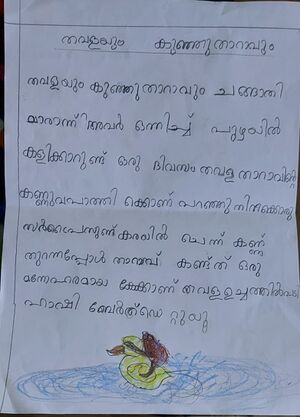 തവളയും കുഞ്ഞുതാറാവും
തവളയും കുഞ്ഞുതാറാവും ചങ്ങാതി
മാരാന്ന് അവർ ഒന്നിച്ച് പുഴയിൽ
കളിക്കാറുണ്ട് ഒരു ദിവസം തവള താറാവിന്റെ
കണ്ണുവപാത്തി ക്കൊണ് പറഞ്ഞു നിനക്കൊരു
സർപ്രൈസുണ്ട് കരയിൽ ചെന്ന് കണ്ണ്
തുറന്നപ്പോൾ താറാവ് കണ്ട്ത് ഒരു
മനേഹരമായ കേക്കാണ് തവള ഉച്ചത്തിൽ
ഹാപ്പി ബേർത്ഡെ റ്റുയു